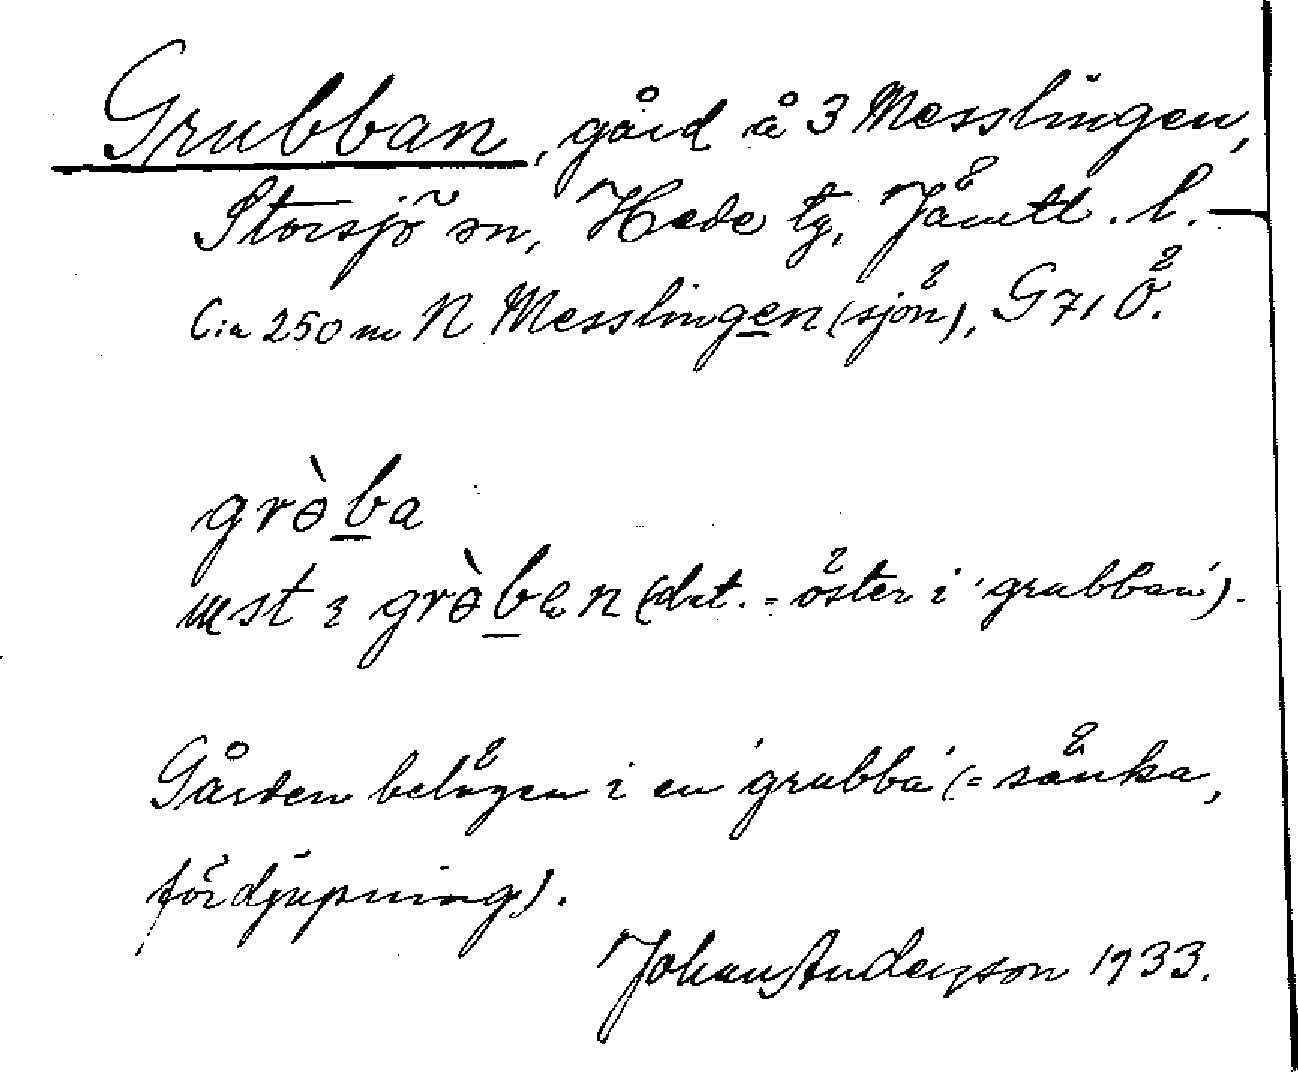 Grubban, gård å 3 Messlingen,
Storsjö sn, Hede tg, Jämtl. l.
C:a 250 m N Messlingen (sjön), G 71 Ö.
grə̀ba
ɯst ɿ grə̀ben (dat. = öster i 'grubban').
Gården belägen i en 'grubba' (= sänka,
fördjupning).
Johan Anderzson 1933.